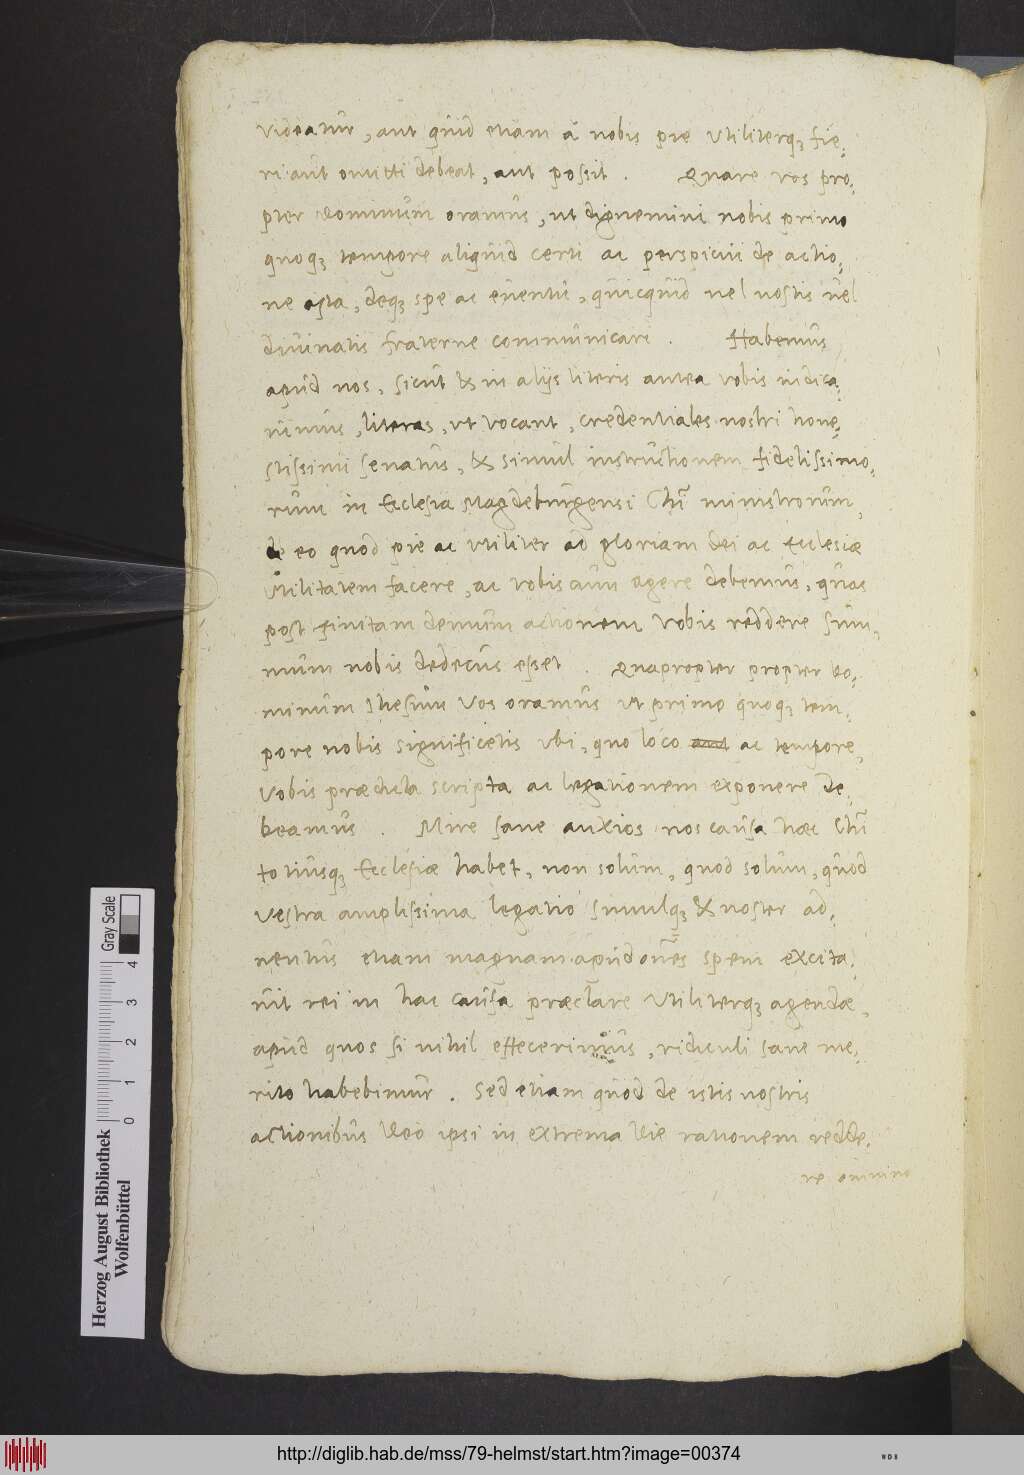 videatur, aut quid etiam à nobis pie utiliterq; fie,
ri aut omitti debeat, aut possit. Quare vos pro,
pter dominum oramus, ut dignemini nobis primo
quoq; tempore aliquid certi ac perspicui de actio,
ne ista, deq; spe ac eventu, quicquid vel nostis vel
divinatis fraterne communicari. Habemus
apud nos, sicut & in alijs literis antea vobis indica,
uimus, literas, ut vocant, credentiales nostri hone,
stissimi senatus, & simul instructionem fidelissimo,
rum in Ecclesia Magdeburgensi Chri ministrorum,
de eo quod pie ac utiliter ad gloriam dei ac Ecclesiæ
utilitatem facere, ac vobiscum agere debemus, quas
post finitam demum actionem vobis reddere sum,
mum nobis dedecus esset. Quapropter propter do,
minum Ihesum vos oramus ut primo quoq; tem,
pore nobis significetis ubi, quo loco aut ac tempore,
vobis prædicta scripta ac legationem exponere de,
beamus. Mire sane anxios nos causa hæc Chri
totiusq; Ecclesiæ habet, non solum, quod solum, quod
vestra amplissima legatio simulq; & noster ad,
ventus etiam magnam apud omnes spem excita,
uit rei in hac causa præclare utiliterq; agendæ,
apud quos si nihil effecerimus, ridiculi sane me,
rito habebimur. Sed etiam quod de istis nostris
actionibus Deo ipsi in extrema die rationem redde,
re omnino
Gray Scale
0 1 2 3 4
Herzog August Bibliothek
Wolfenbüttel
http://diglib.hab.de/mss/79-helmst/start.htm?image=00374